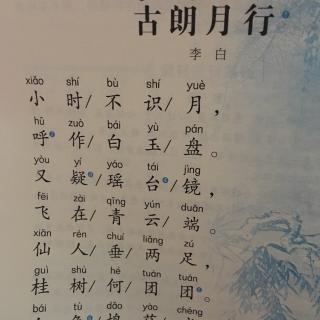 古朗月行
李白
xiǎo shí bù shí yuè
小时/不识月，
hū zuò bái yù pán
呼作/白玉盘。
yòu yí yáo tái jìng
又疑/瑶台镜，
fēi zài qīng yún duān
飞在/青云端。
xiān rén chuí liǎng zú
仙人/垂两足，
guì shù hé tuán tuán
桂树/何团团。
bái tù dǎo yào chéng